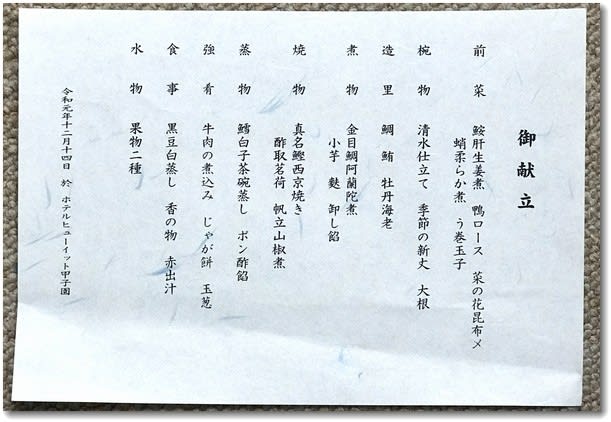 御献立
前菜 鮟肝生姜煮 鴨ロース 菜の花昆布〆
蛸柔らか煮 う巻玉子
椀物 清水仕立て 季節の新丈 大根
造里 鯛 鮪 牡丹海老
煮物 金目鯛阿蘭陀煮
小芋 麩 卸し餡
焼物 真名鰹西京焼き
酢取茗荷 帆立山椒煮
蒸物 鱈白子茶碗蒸し ポン酢餡
強肴 牛肉の煮込み じゃが餅 玉葱
食事 黒豆白蒸し 香の物 赤出汁
水物 果物二種
令和元年十二月十四日 於 ホテルヒューイット甲子園